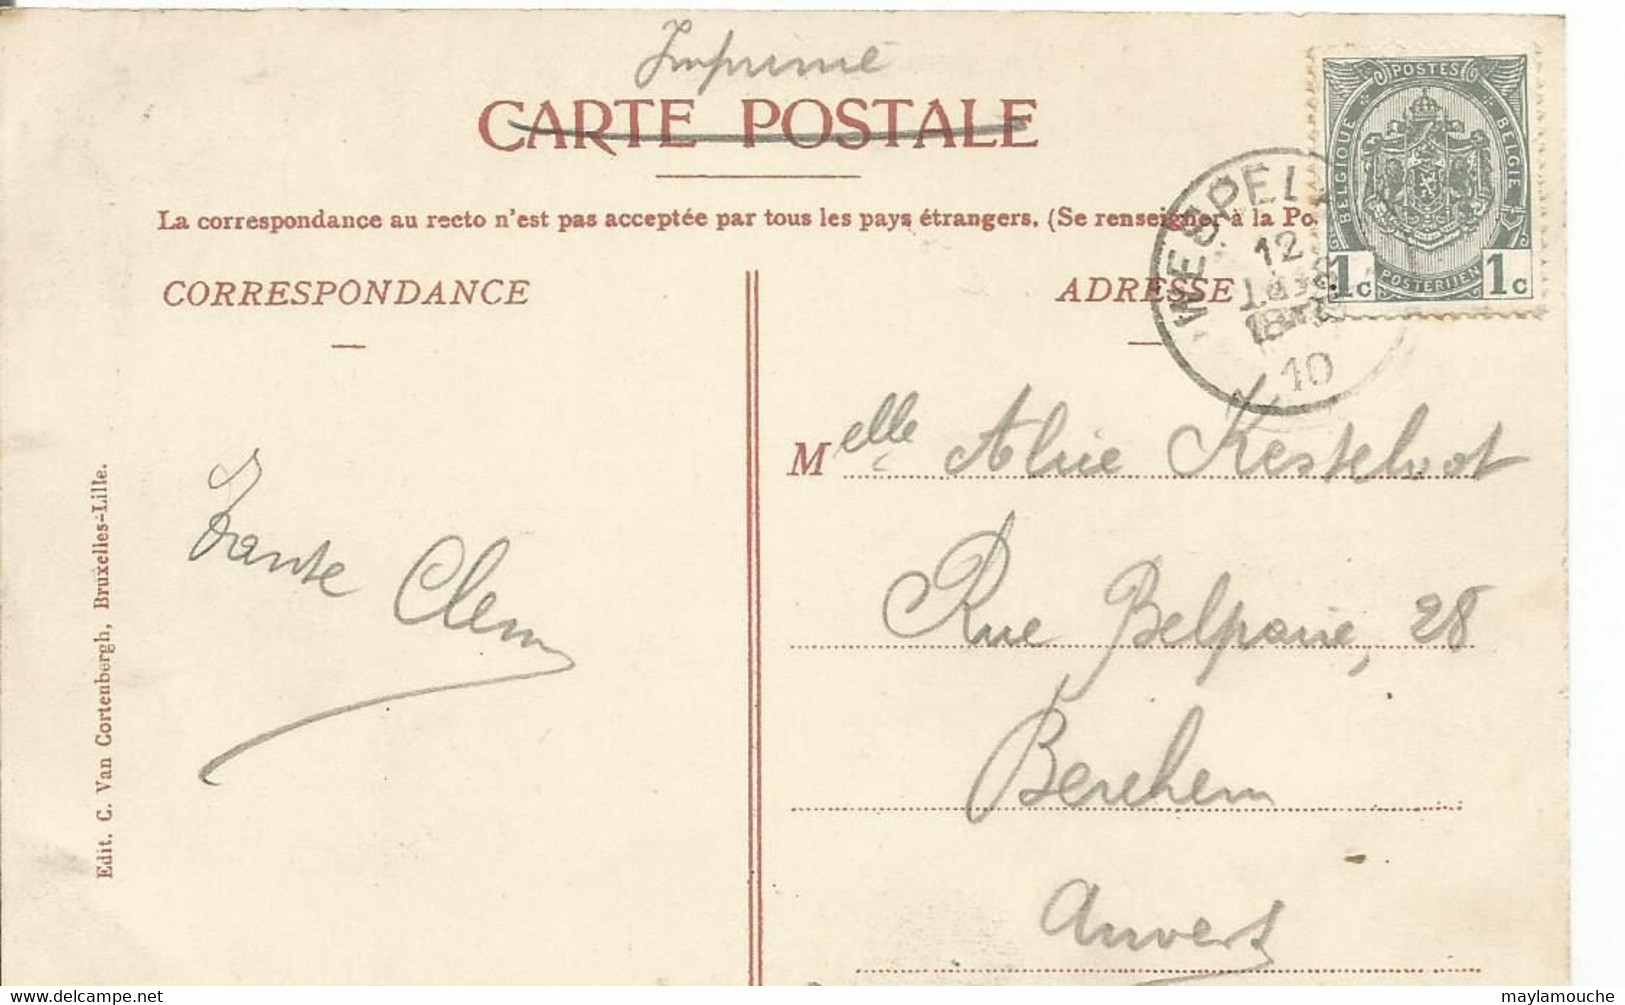 Imprimé
CARTE POSTALE
La correspondance au recto n'est pas acceptée par tous les pays étrangers. (Se renseigner à la Po
POSTES
BELGIQUE
BELGIE
1c POSTERIJEN 1c
WESPEL
12
10
CORRESPONDANCE
ADRESSE
Melle Alice Kesteloot
Rue Belpaire, 28
Berchem
Anvers
Tante Clem
Edit. C. Van Cortenbergh, Bruxelles-Lille.
www.delcampe.net
maylamouche